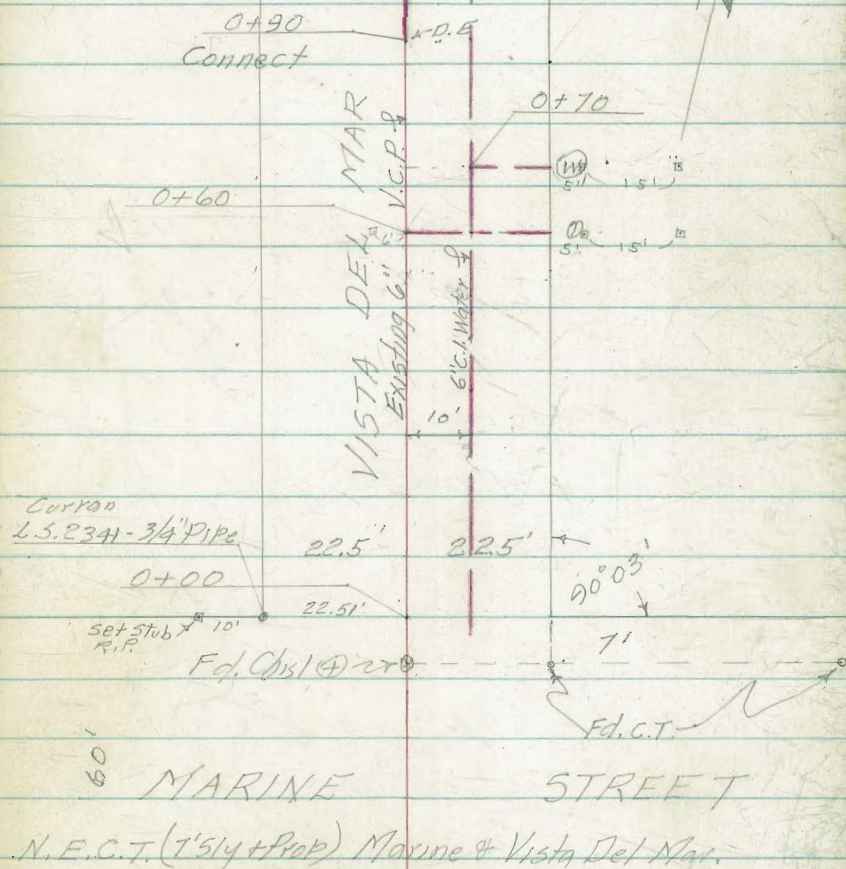 0+90
Connect
D.E
0+70
W
5' 15'
0+60
6'
5' 15'
VISTA DEL MAR
Existing 6" V.C.P.
6" C.I. Water
10'
Curran
L.S. 2341 - 3/4" Pipe
22.5' 22.5'
90°03'
0+00
22.51'
set stub
R.P.
10'
7'
Fd. Chisl
Fd. C.T.
60'
MARINE STREET
N.E.C.T. (7'Sly + Prop) Marine & Vista Del Mar.